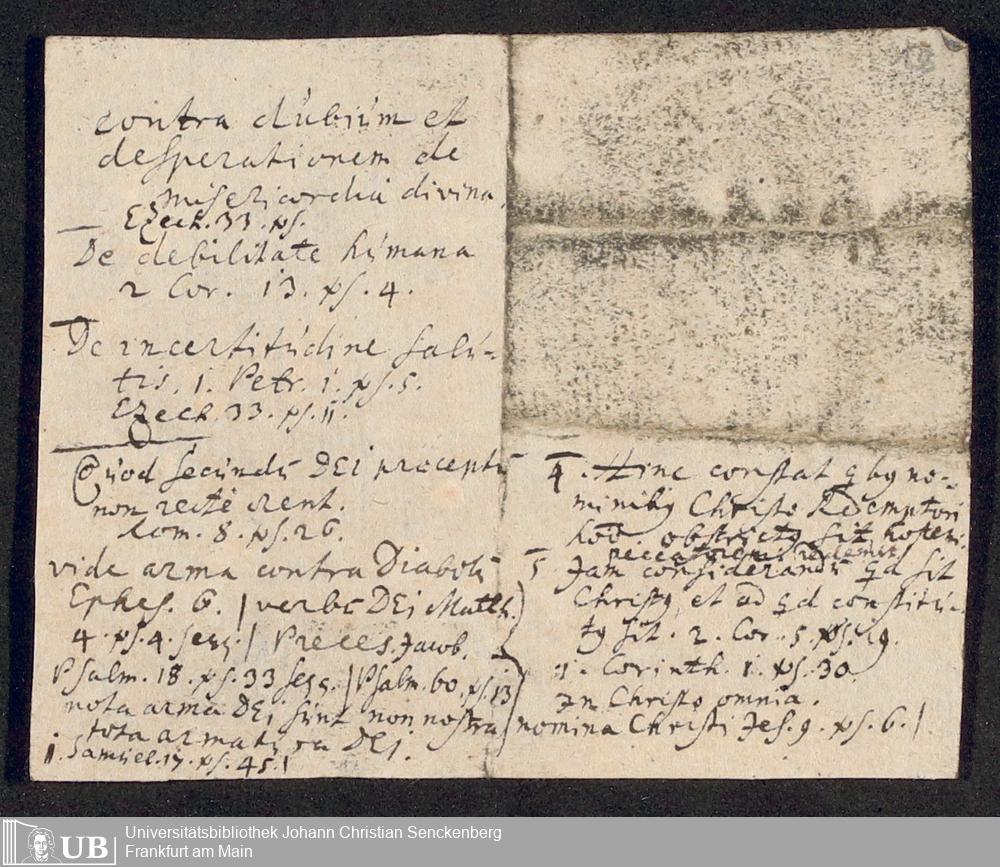 contra dubium et
desperationem de
misericordia divina.
Ezech. 33. ps.
De debilitate humana
2 Cor. 13. ps. 4.
De incertitudine salu-
tis. 1. Petr. 1. ps. 5.
Ezech. 33. ps. 11.
Quod secundū DEI præceptū
non recte orent.
Rom. 8. ps. 26.
vide arma contra Diabolū
Ephes. 6. / verbū DEI Matth.
4. ps. 4. seqq. / Preces. Jacob.
Psalm. 18. ps. 33 seqq. / Psalm. 60. ps. 13
nota arma DEI sunt non nostra
tota armatura DEI.
1. Samuel. 17. ps. 45. /
4. Hinc constat
minibq Christo Redemptori
obstrictq sit
peccatorem
5. Jam considerandū qd sit
Christq, et ad qd constitu-
tq sit. 2. Cor. 5. ps. 19.
1. Corinth. 1. ps. 30
In Christo omnia.
nomina Christi Jes. 9. ps. 6. /
UB
Universitätsbibliothek Johann Christian Senckenberg
Frankfurt am Main